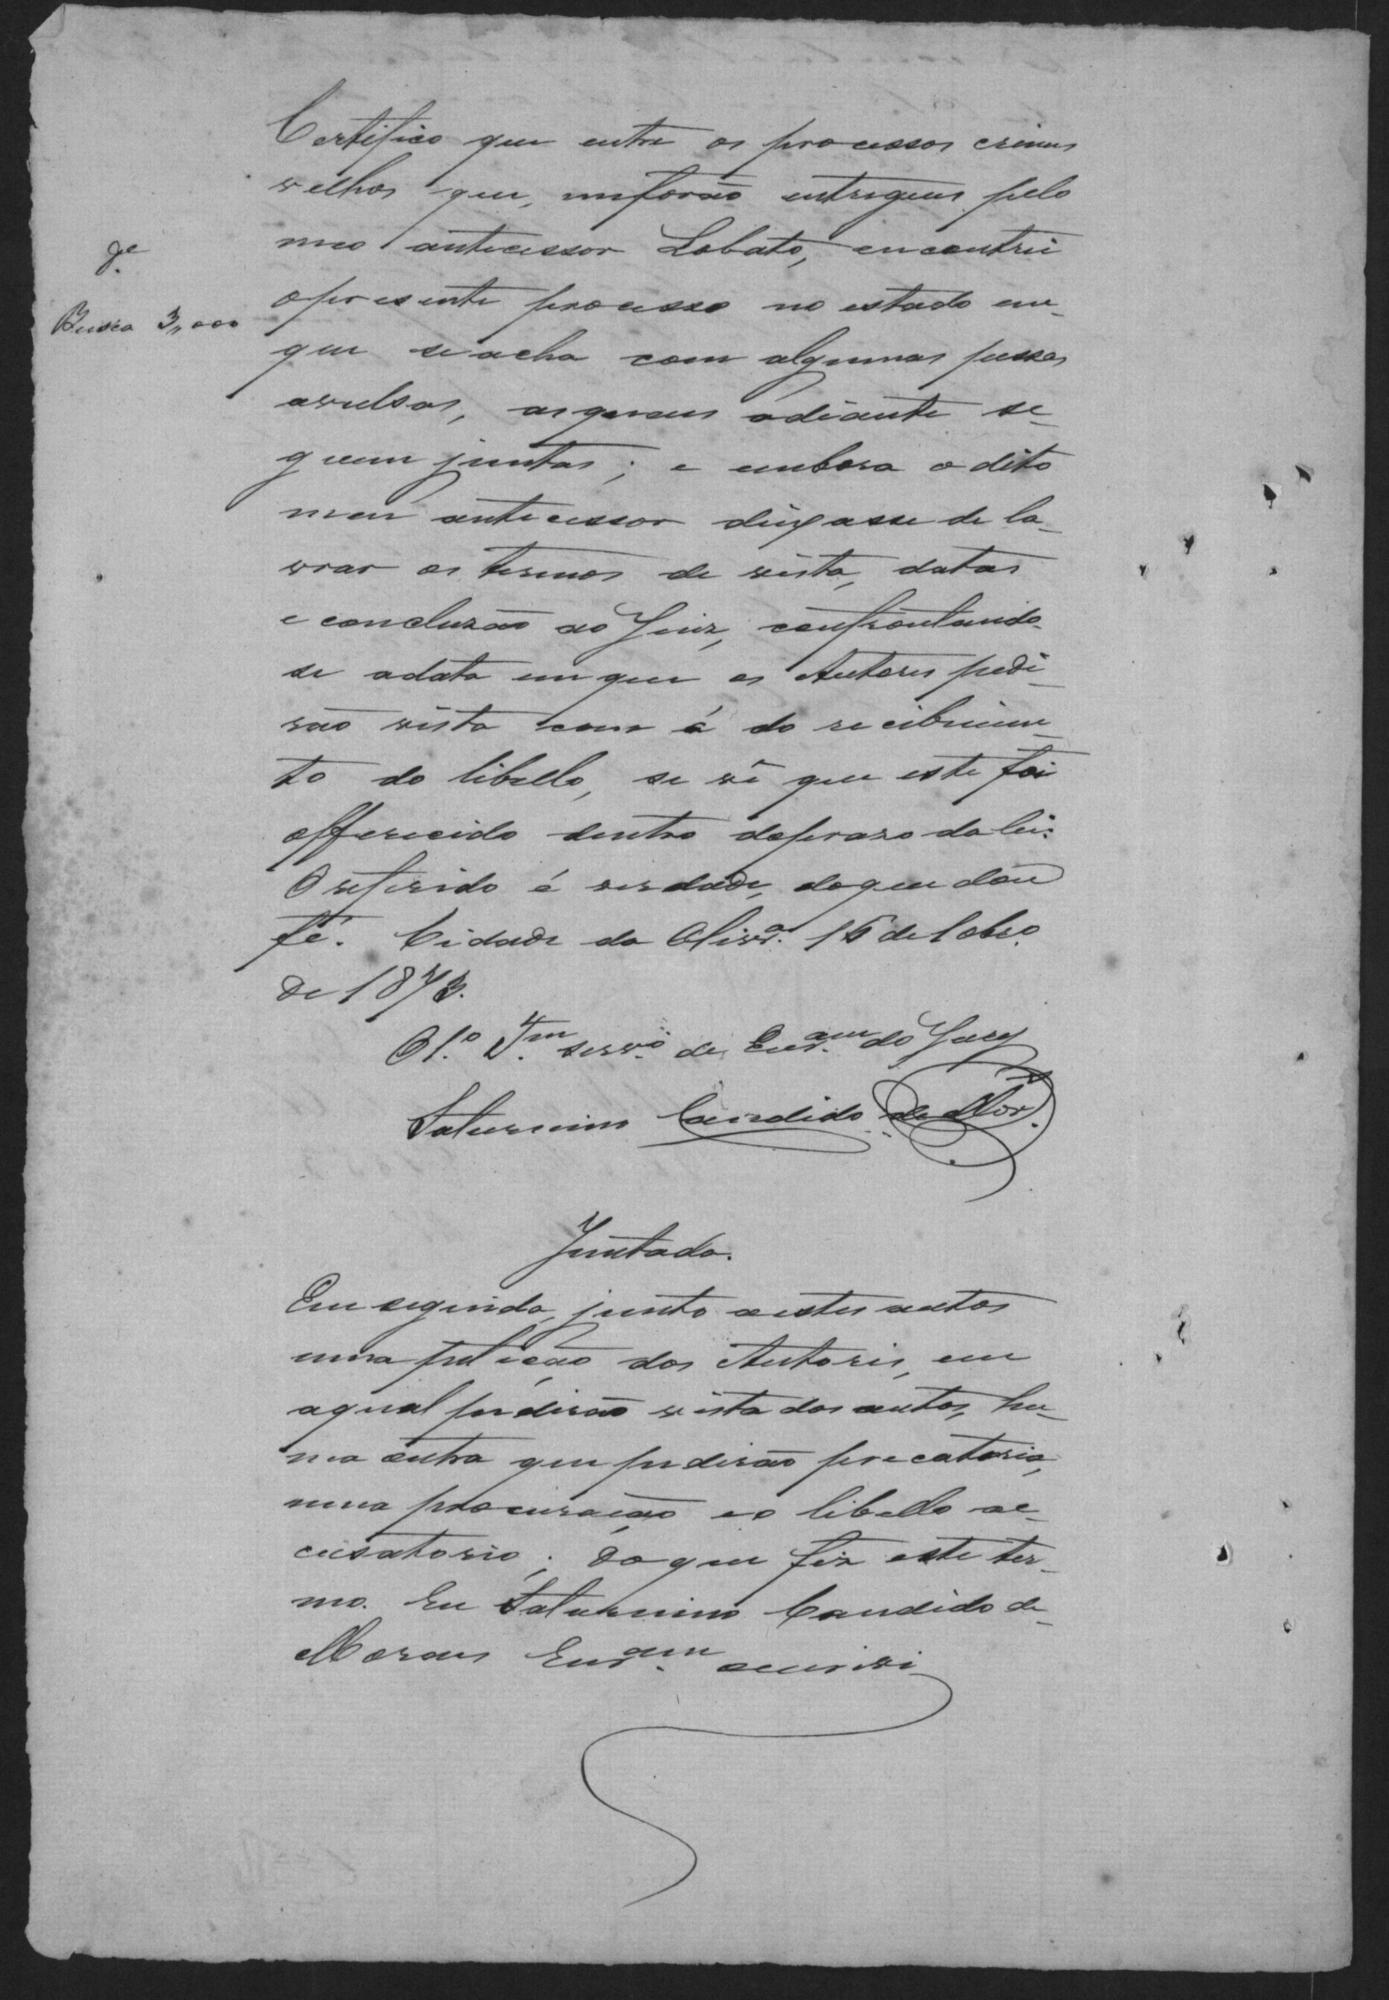 Certifico que entre os processos crimes
velhos que, me forão entregues pelo
meo antecessor Lobato, encontrei
o presente processo no estado em
que se acha com algumas pessas
avulsas, as quaes adiante se-
guem juntas; e embora o dito
meu antecessor deixasse de la-
vrar os termos de vista, datas
e concluzão ao Juiz, confrontando
se a data em que os Autores pedi-
rão vista com á do recebimen-
to do libello, se vê que este foi
offerecido dentro do praso da lei.
O referido é verdade, do que dou
fé. Cidade da Olivrª. 16 de
de 1873.
Busca 3,,000
servº de do Jury
Saturnino Candido de Mor.
Juntada.
Em seguida, junto a estes autos
uma petição dos Autores, em
a qual pedirão vista dos autos, hu-
ma outra que pedirão precatoria,
uma procuração e o libello ac-
cusatorio; do que fiz este ter-
mo. Eu Saturnino Candido de
Moraes escrevi